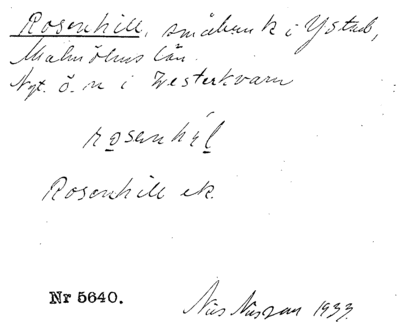 Rosenhill, småbruk i Ystad,
Malmöhus län.
Nyt. ö. n i Westerkvarn
rosenhil
Rosenhill ek.
Nr 5640.
Nils 1933.